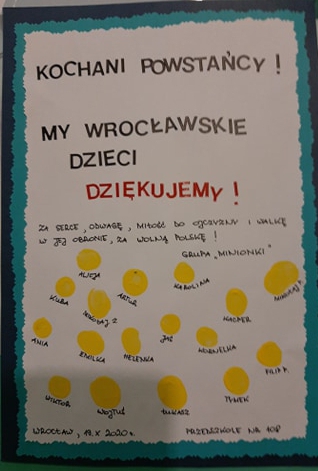 KOCHANI POWSTAŃCY !
MY WROCŁAWSKIE
DZIECI
DZIĘKUJEMY !
ZA SERCE, ODWAGĘ, MIŁOŚĆ DO OJCZYZNY I WALKĘ
W JEJ OBRONIE, ZA WOLNĄ POLSKĘ !
GRUPA „MINIONKI"
ALICJA
KAROLINA
MIKOŁAJ
KUBA
ARTUR
KACPER
ANIA
EMILKA
HELENKA
JAŚ
KORNELKA
FILIP
WIKTOR
WOJTUŚ
ŁUKASZ
TYMEK
WROCŁAW, 19.X 2020 r.
PRZEDSZKOLE NR 109